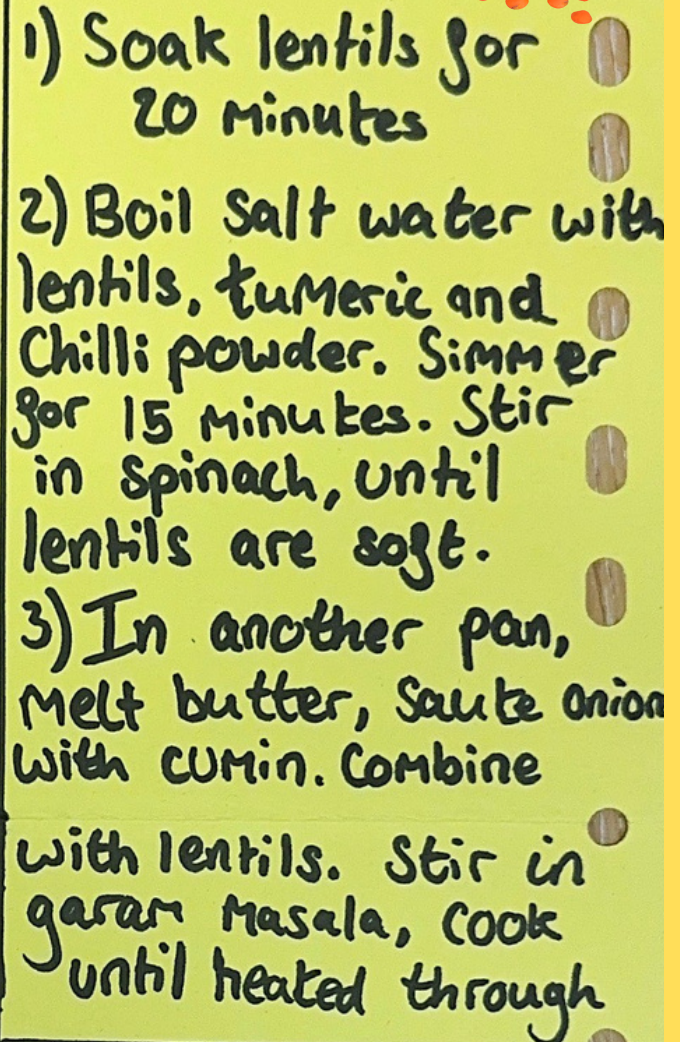 1) Soak lentils for
20 Minutes
2) Boil Salt water with
lentils, tumeric and
Chilli powder. Simmer
for 15 Minutes. Stir
in spinach, until
lentils are soft.
3) In another pan,
Melt butter, Saute onion
with cumin. Combine
with lentils. Stir in
garam Masala, Cook
until heated through